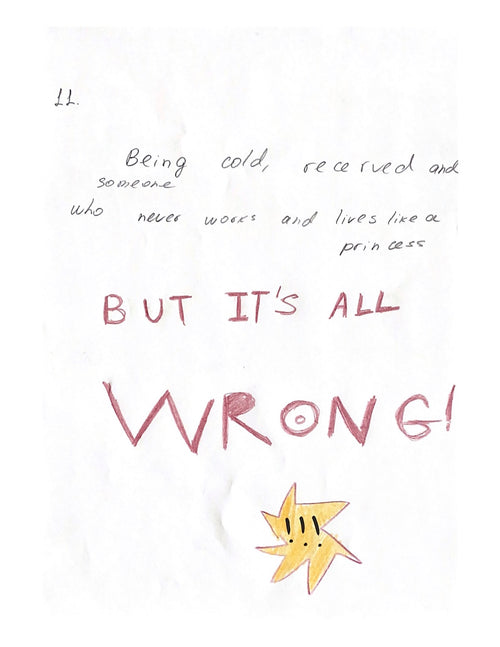 11.
Being cold, recerved and
someone
who never works and lives like a
princess
BUT IT'S ALL
WRONG!
!!!